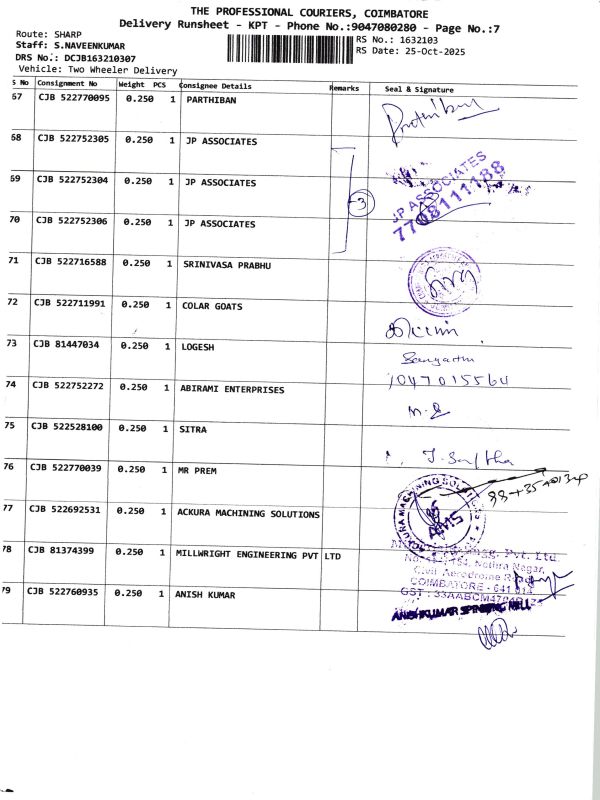 THE PROFESSIONAL COURIERS, COIMBATORE
Delivery Runsheet - KPT - Phone No.:9047080280 - Page No.:7
Route: SHARP
Staff: S.NAVEENKUMAR
DRS No.: DCJB163210307
Vehicle: Two Wheeler Delivery
RS No.: 1632103
RS Date: 25-Oct-2025
S No Consignment No Weight PCS Consignee Details Remarks Seal & Signature
67 CJB 522770095 0.250 1 PARTHIBAN
68 CJB 522752305 0.250 1 JP ASSOCIATES
69 CJB 522752304 0.250 1 JP ASSOCIATES
3
JP ASSOCIATES
7708111188
70 CJB 522752306 0.250 1 JP ASSOCIATES
71 CJB 522716588 0.250 1 SRINIVASA PRABHU
72 CJB 522711991 0.250 1 COLAR GOATS
73 CJB 81447034 0.250 1 LOGESH
74 CJB 522752272 0.250 1 ABIRAMI ENTERPRISES
75 CJB 522528100 0.250 1 SITRA
76 CJB 522770039 0.250 1 MR PREM
77 CJB 522692531 0.250 1 ACKURA MACHINING SOLUTIONS
ACKURA MACHINING SOLUTIONS
AMS
78 CJB 81374399 0.250 1 MILLWRIGHT ENGINEERING PVT LTD
Engg. Pvt. Ltd.
Nehru Nagar,
Civil Aerodrome Road
COIMBATORE - 641 014
79 CJB 522760935 0.250 1 ANISH KUMAR
ANISHKUMAR SPINNING MILL